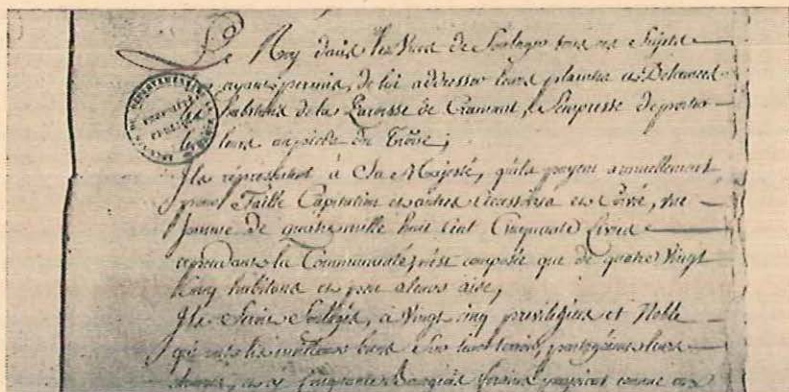 Le Roy dans les Vues de Soulager tous ses Sujets
ayant permis, de lui addresser leurs plaintes et Doleances
habitans de la Paroisse de Cramant, s'empresse de porter
leurs au pieds du Trône;
Ils représentent à Sa Majesté, qu'ils payent annuellement
pour Taille Capitation et autres accessoires et Corvé, une
somme de quatre mille huit cent Cinquante livres
cependant la Communauté, n'est composée que de quatre Vingt
cinq habitans et peu à leurs aise,
à Vingt cinq privilégiés et Noble
qui les meilleurs biens Sur leur terroir,
et Bourgeois forains payoient comme